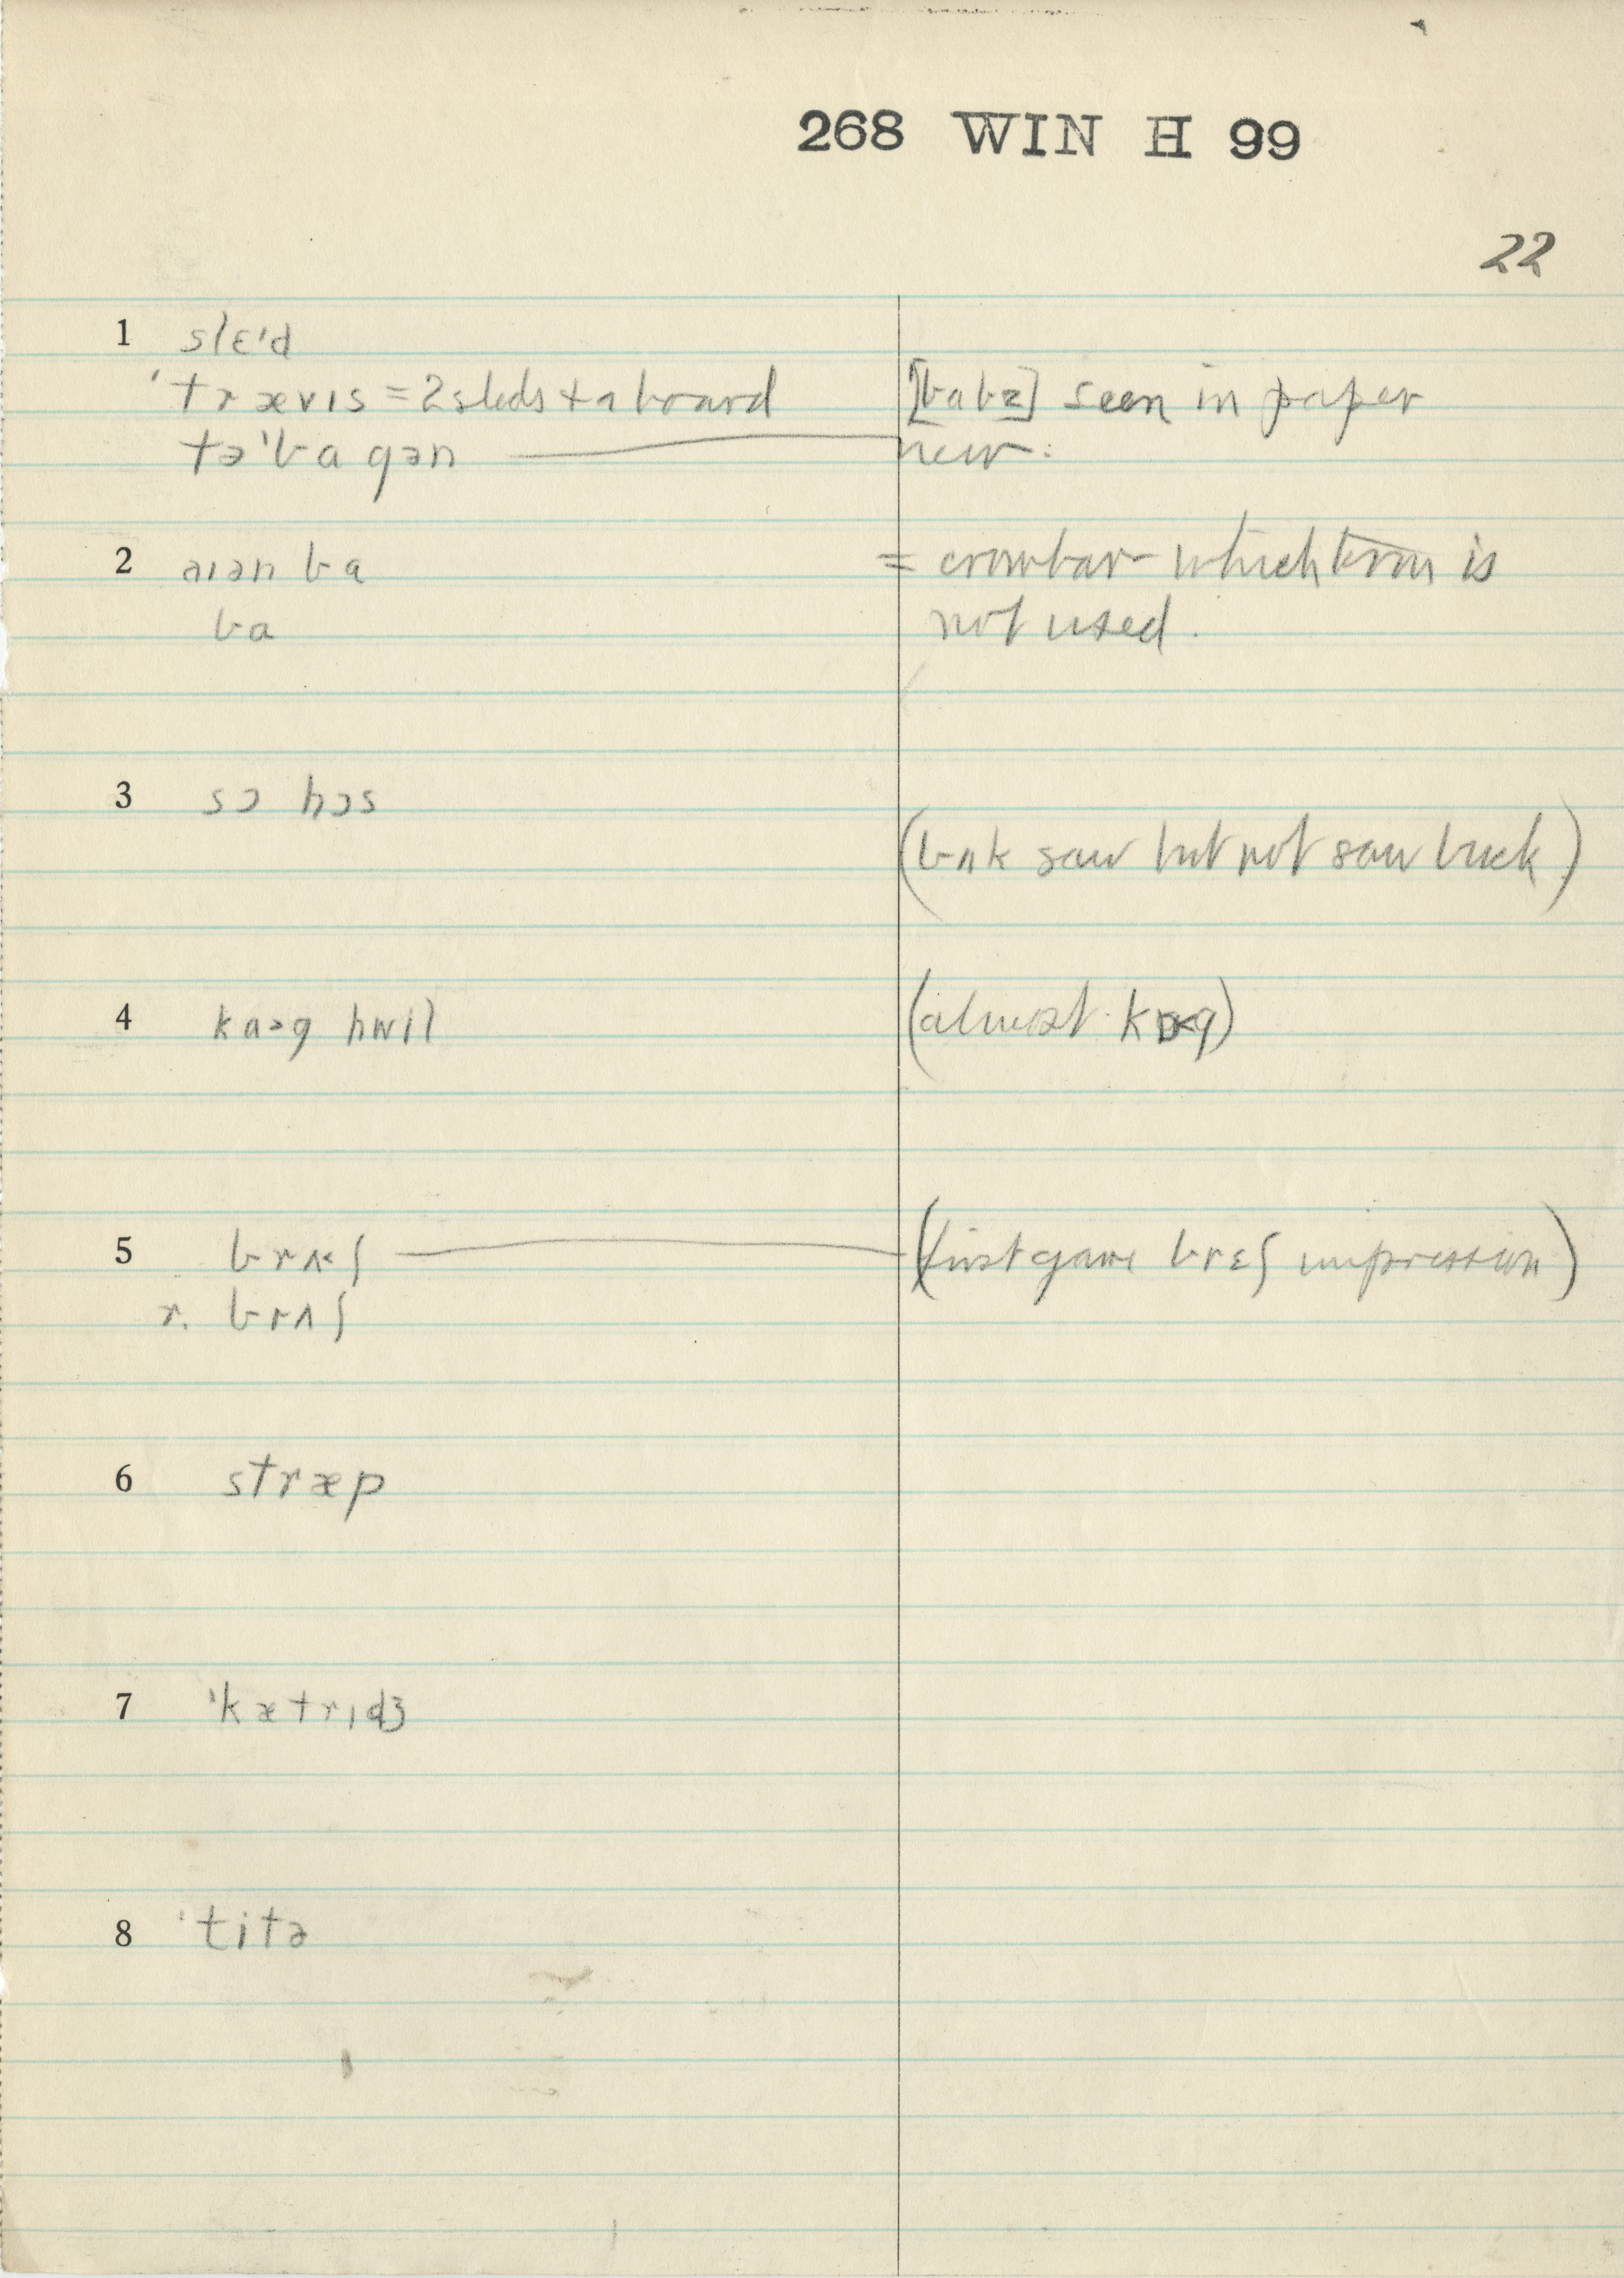 268 WIN H 99
22
1 slɛ'd
'trævɪs = 2 sleds + a board
[babz] seen in paper
tə'bagən
new:
2 aɪən ba
= crowbar which term is
ba
not used.
3 sɔ hɔs
(bʌk saw but not saw buck)
4 kaɔg hwil
(almost kɒg)
5 brʌ˂ʃ
(first gave brɛʃ impression)
r. brʌʃ
6 stræp
7 'kætrɪdʒ
8 'titə